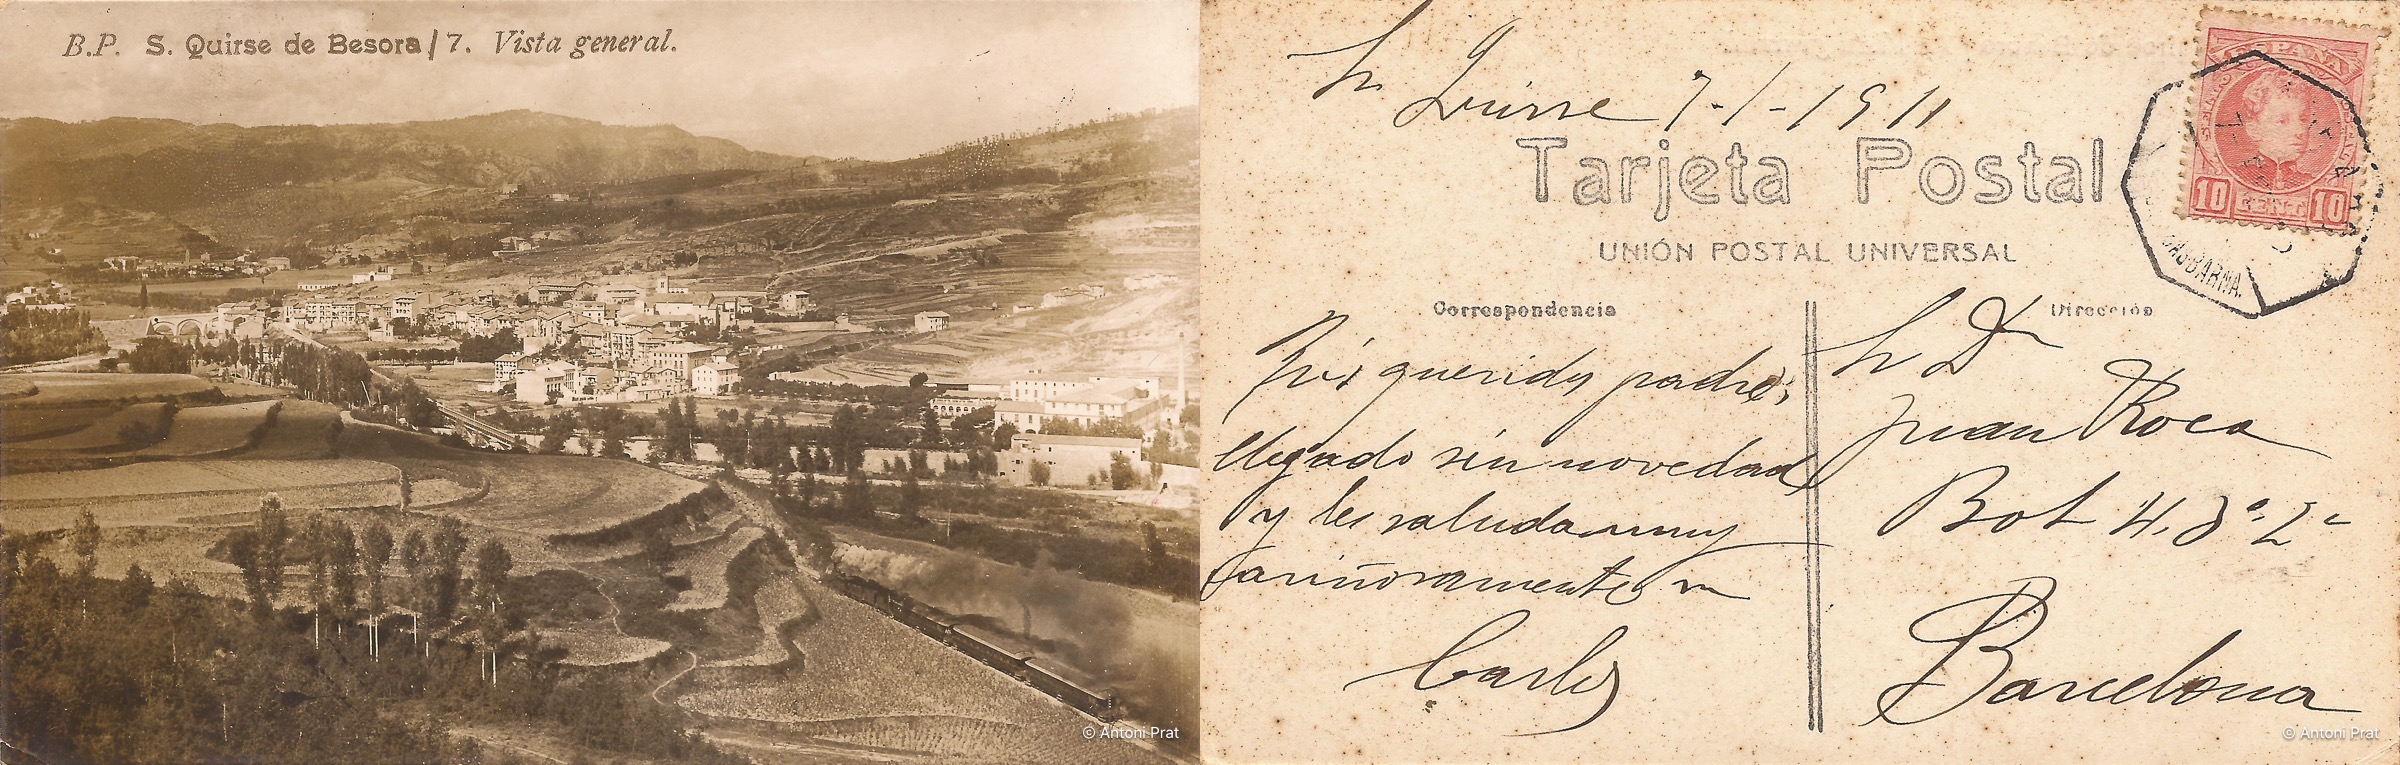 B.P. S. Quirse de Besora / 7. Vista general.
© Antoni Prat
Sn Quirse 7-1-1911
Tarjeta Postal
UNIÓN POSTAL UNIVERSAL
Correspondencia
Mis queridos padres,
llegado sin novedad
y les saluda muy
cariñosamente
Carlos
Dirección
Sr Dn
Juan Roca
Bot 4, 3º 2ª
Barcelona
ESPAÑA
10 CENT. 10
© Antoni Prat